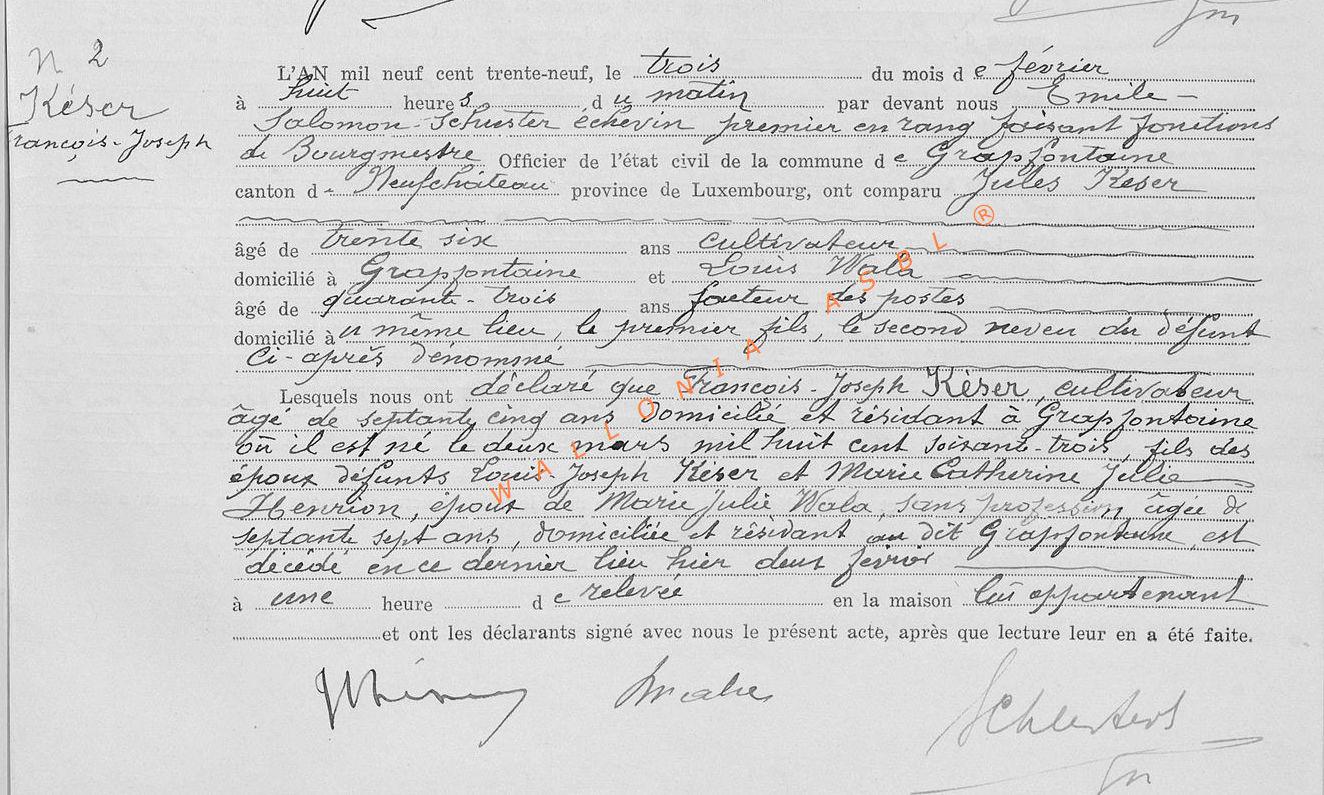 N 2
Késer
François-Joseph
L'AN mil neuf cent trente-neuf, le trois du mois de février
à huit heures du matin par devant nous Emile
Salomon-Schuster échevin premier en rang faisant fonctions
de Bourgmestre Officier de l'état civil de la commune de Grapfontaine
canton d- Neufchâteau province de Luxembourg, ont comparu Jules Keser
âgé de trente six ans cultivateur
domicilié à Grapfontaine et Louis Wala
âgé de quarante-trois ans facteur des postes
domicilié àu même lieu, le premier fils, le second neveu du défunt
ci-après dénommé
Lesquels nous ont déclaré que François-Joseph Késer, cultivateur
âgé de septante cinq ans domicilié et résidant à Grapfontaine
où il est né le deux mars mil huit cent soixante-trois, fils des
époux défunts Louis-Joseph Keser et Marie Catherine Julie
Henrion, époux de Marie Julie Wala, sans profession, âgée de
septante sept ans, domiciliée et résidant au dit Grapfontaine, est
décédé en ce dernier lieu hier deux février
à une heure de relevée en la maison lui appartenant
et ont les déclarants signé avec nous le présent acte, après que lecture leur en a été faite.
WALLONIA ASBL ®